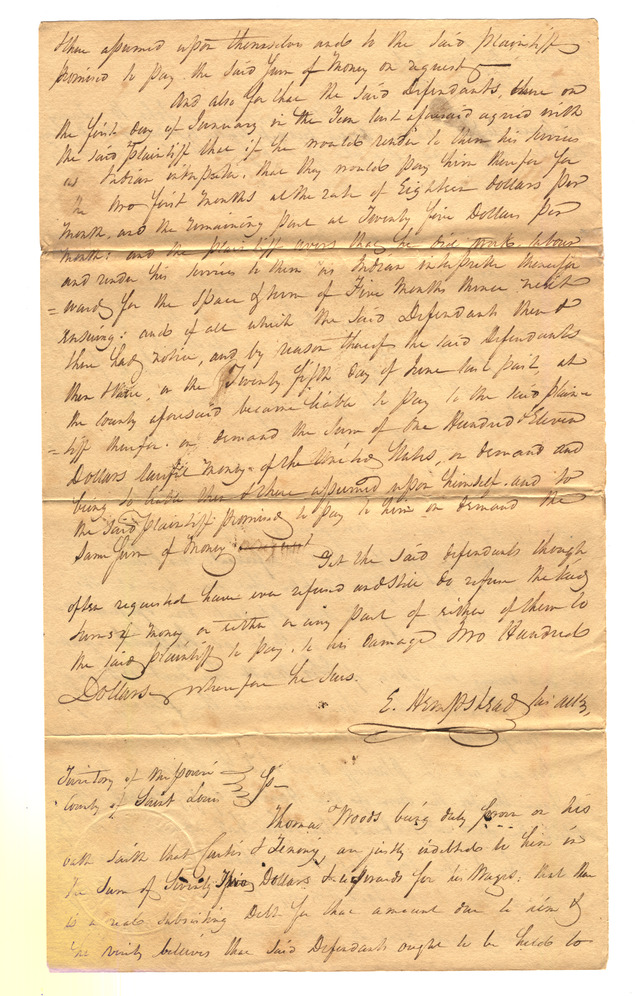 then assumed upon themselves and to the said plaintiff
promised to pay the said Sum of Money on request
And also for that the said Defendants, there on
the first day of January in the Year last aforesaid agreed with
the said Plaintiff that if he would render to them his services
as Indian interpreter, that they would pay him therefor for
the two first months at the rate of Eighteen Dollars per
month, and the remaining part at Twenty five Dollars per
month; and the plaintiff avers that he did work, labour
and render his services to them as Indian interpreter thereafter
=wards for the space & term of Five Months thence next
ensuing: and of all which the said Defendants then &
there had notice, and by reason thereof the said Defendants
then & there, on the Twenty fifth day of June last past, at
the County aforesaid became liable to pay to the said plain=
=tiff therefor on demand the sum of one Hundred & Eleven
Dollars lawful money of the United States, on demand and
being so liable then & there assumed upon himself and to
the said Plaintiff promised to pay to him on demand the
same Sum of Money
Yet the said defendants though
often requested have ever refused and still do refuse the said
sums of money or either or any part of either of them to
the said plaintiff to pay, to his damage Two Hundred
Dollars, wherefore he sues.
E. Hempstead his atty,
Territory of Missouri
County of Saint Louis Ss
Thomas Woods being duly sworn on his
oath saith that & are justly indebted to him in
the sum of Seventy Dollars & upwards for his Wages; that there
is a real subsisting Debt for that amount due to him &
he verily believes that said Defendants ought to be held to